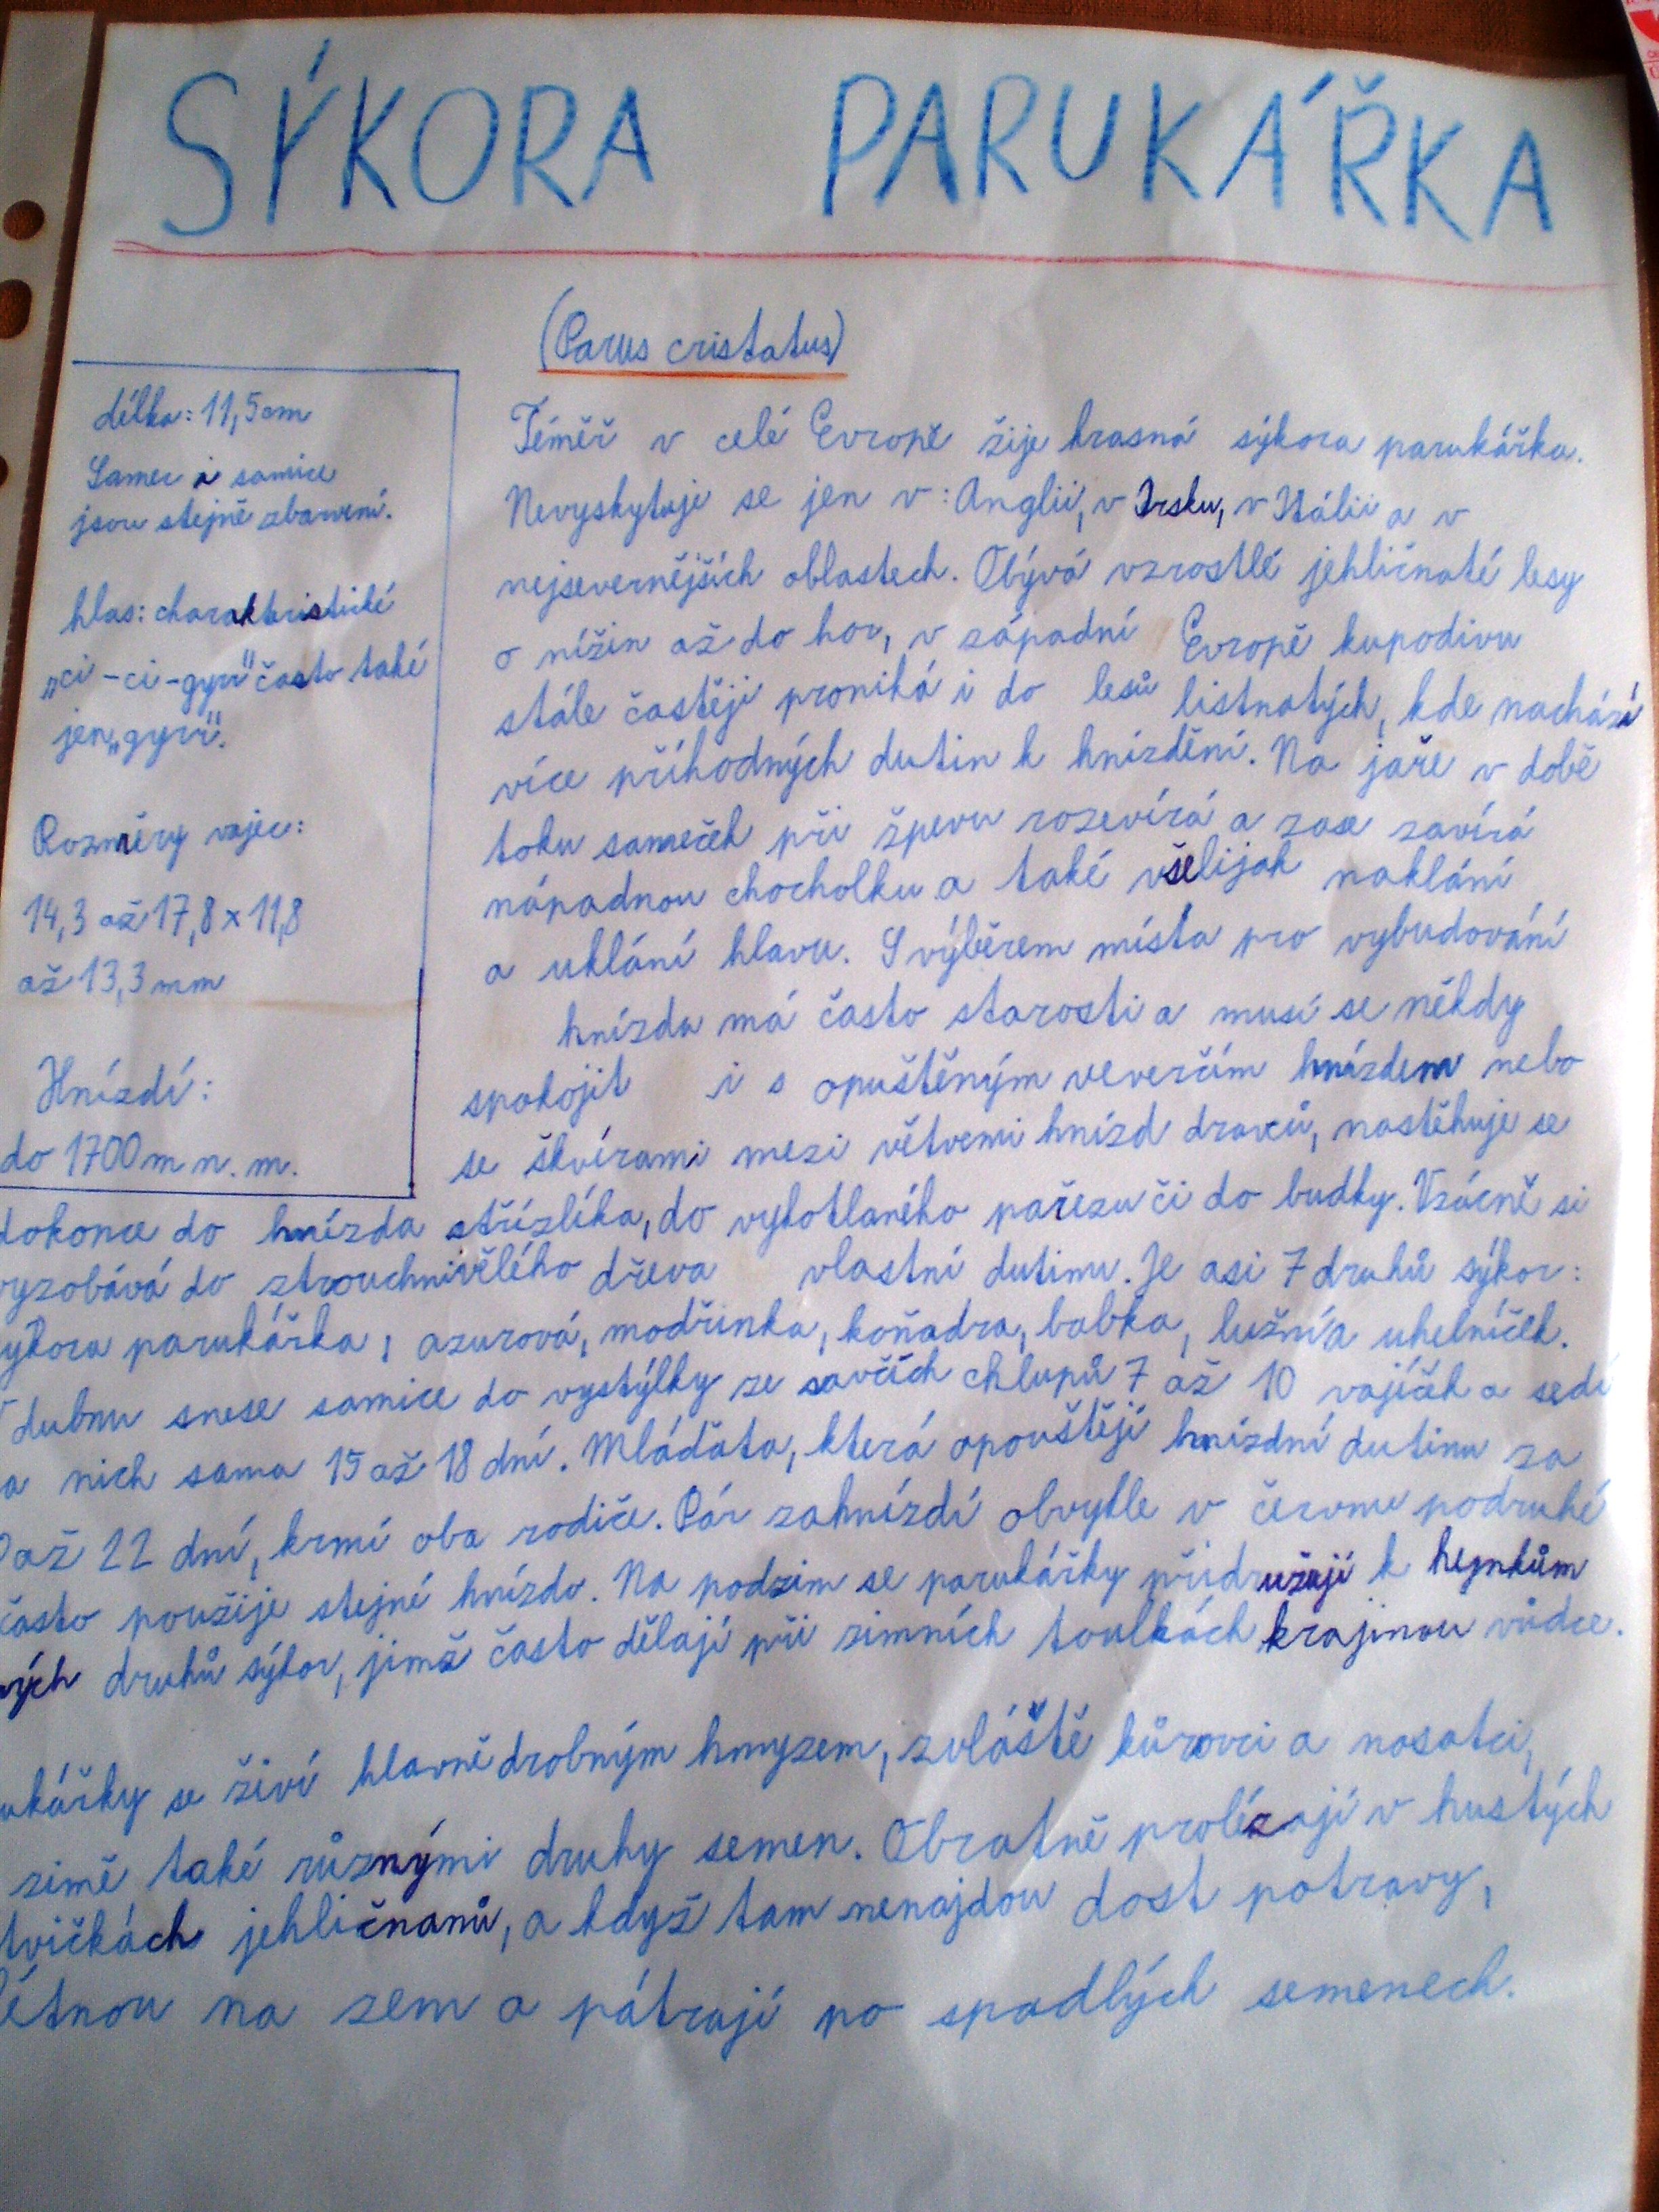 SÝKORA PARUKÁŘKA
(Parus cristatus)
délka: 11,5cm
Samec i samice
jsou stejně zbarveni.
hlas: charakteristické
„ci-ci-gyrr" často také
jen „gyrr".
Rozměry vajec:
14,3 až 17,8 x 11,8
až 13,3 mm
Hnízdí:
do 1700 m n. m.
Téměř v celé Evropě žije krasná sýkora parukářka.
Nevyskytuje se jen v: Anglii, v Irsku, v Itálii a v
nejsevernějších oblastech. Obývá vzrostlé jehličnaté lesy
o nížin až do hor, v západní Evropě kupodivu
stále častěji proniká i do lesů listnatých, kde nachází
více příhodných dutin k hnízdění. Na jaře v době
toku sameček při zpevu rozevírá a zase zavírá
nápadnou chocholku a také všelijak naklání
a uklání hlavu. S výběrem místa pro vybudování
hnízda má často starosti a musí se někdy
spokojit i s opuštěným veverčím hnízdem nebo
se škvírami mezi větvemi hnízd dravců, nastěhuje se
dokonce do hnízda střízlíka, do vykotlaného pařezu či do budky. Vzácně si
vyzobává do ztrouchnivělého dřeva vlastní dutinu. Je asi 7 druhů sýkor:
sýkora parukářka, azurová, modřinka, koňadra, babka, lužní a uhelníček.
V dubnu snese samice do vystýlky ze savčích chlupů 7 až 10 vajíček a sedí
a nich sama 15 až 18 dní. Mláďata, která opouštějí hnízdní dutinu za
až 22 dní, krmí oba rodiče. Pár zahnízdí obvykle v červnu podruhé
často použije stejné hnízdo. Na podzim se parukářky přidružují k hejnkům
ných druhů sýkor, jimž často dělají při zimních toulkách krajinou vůdce.
ukářky se živí hlavně drobným hmyzem, zvláště kůrovci a nosatci,
zimě také různými druhy semen. Obratně prolézají v hustých
tvičkách jehličnanů, a když tam nenajdou dost potravy,
létnou na zem a pátrají po spadlých semenech.